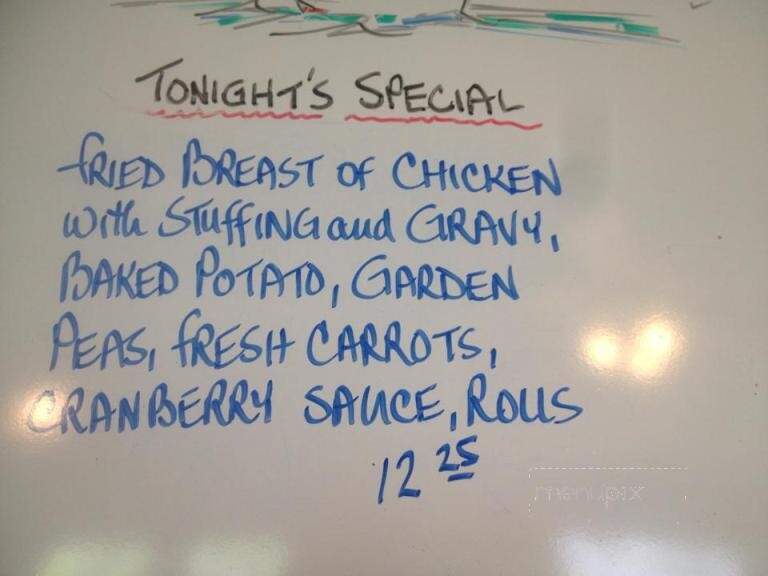 TONIGHT'S SPECIAL
fRIED BREAST OF CHICKEN
with STUffING and GRAVY,
BAKED POTATO, GARDEN
PEAS, fRESH CARROTS,
CRANBERRY SAUCE, ROLLS
12 25
menupix